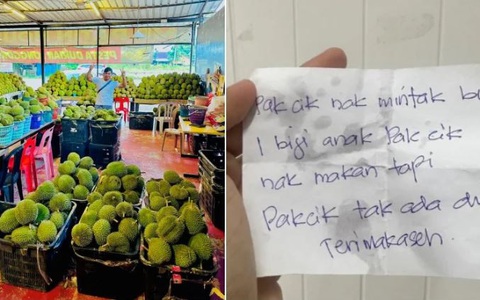 PESTA DURIAN
Pakcik nak mintak
1 biji anak Pakcik
nak makan tapi
Pakcik tak ada du
Terimakaseh.